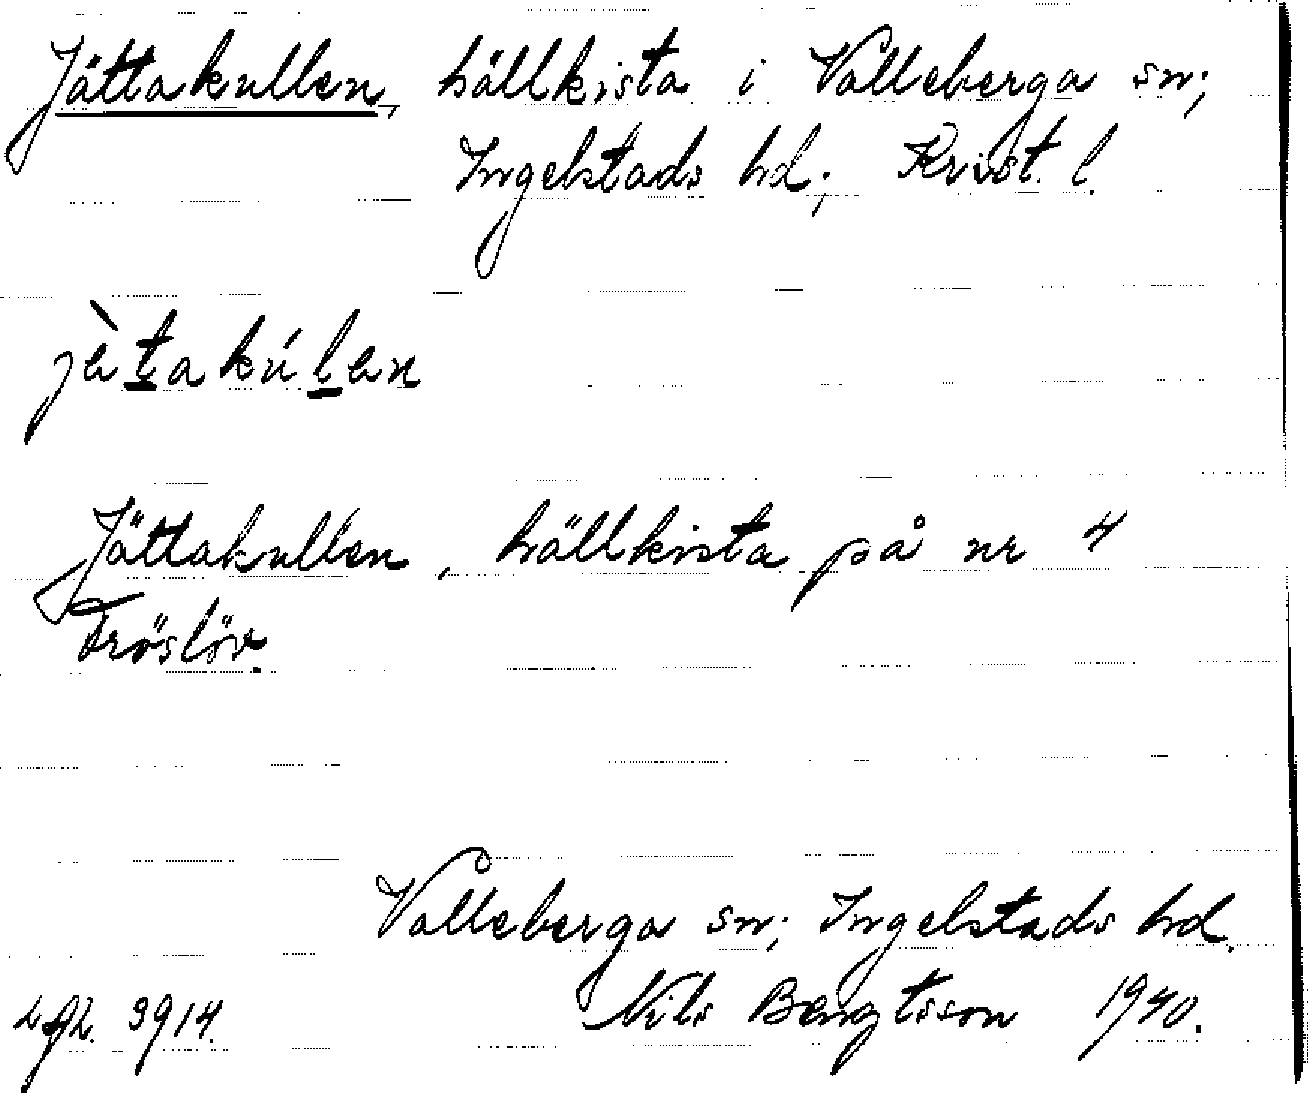 Jättakullen, hällkista i Valleberga sn;
Ingelstads hd; Krist. l.
jètakúlen
Jättakullen, hällkista på nr 4
Fröslöv.
Valleberga sn; Ingelstads hd.
Nils Bengtsson 1940.
3914.